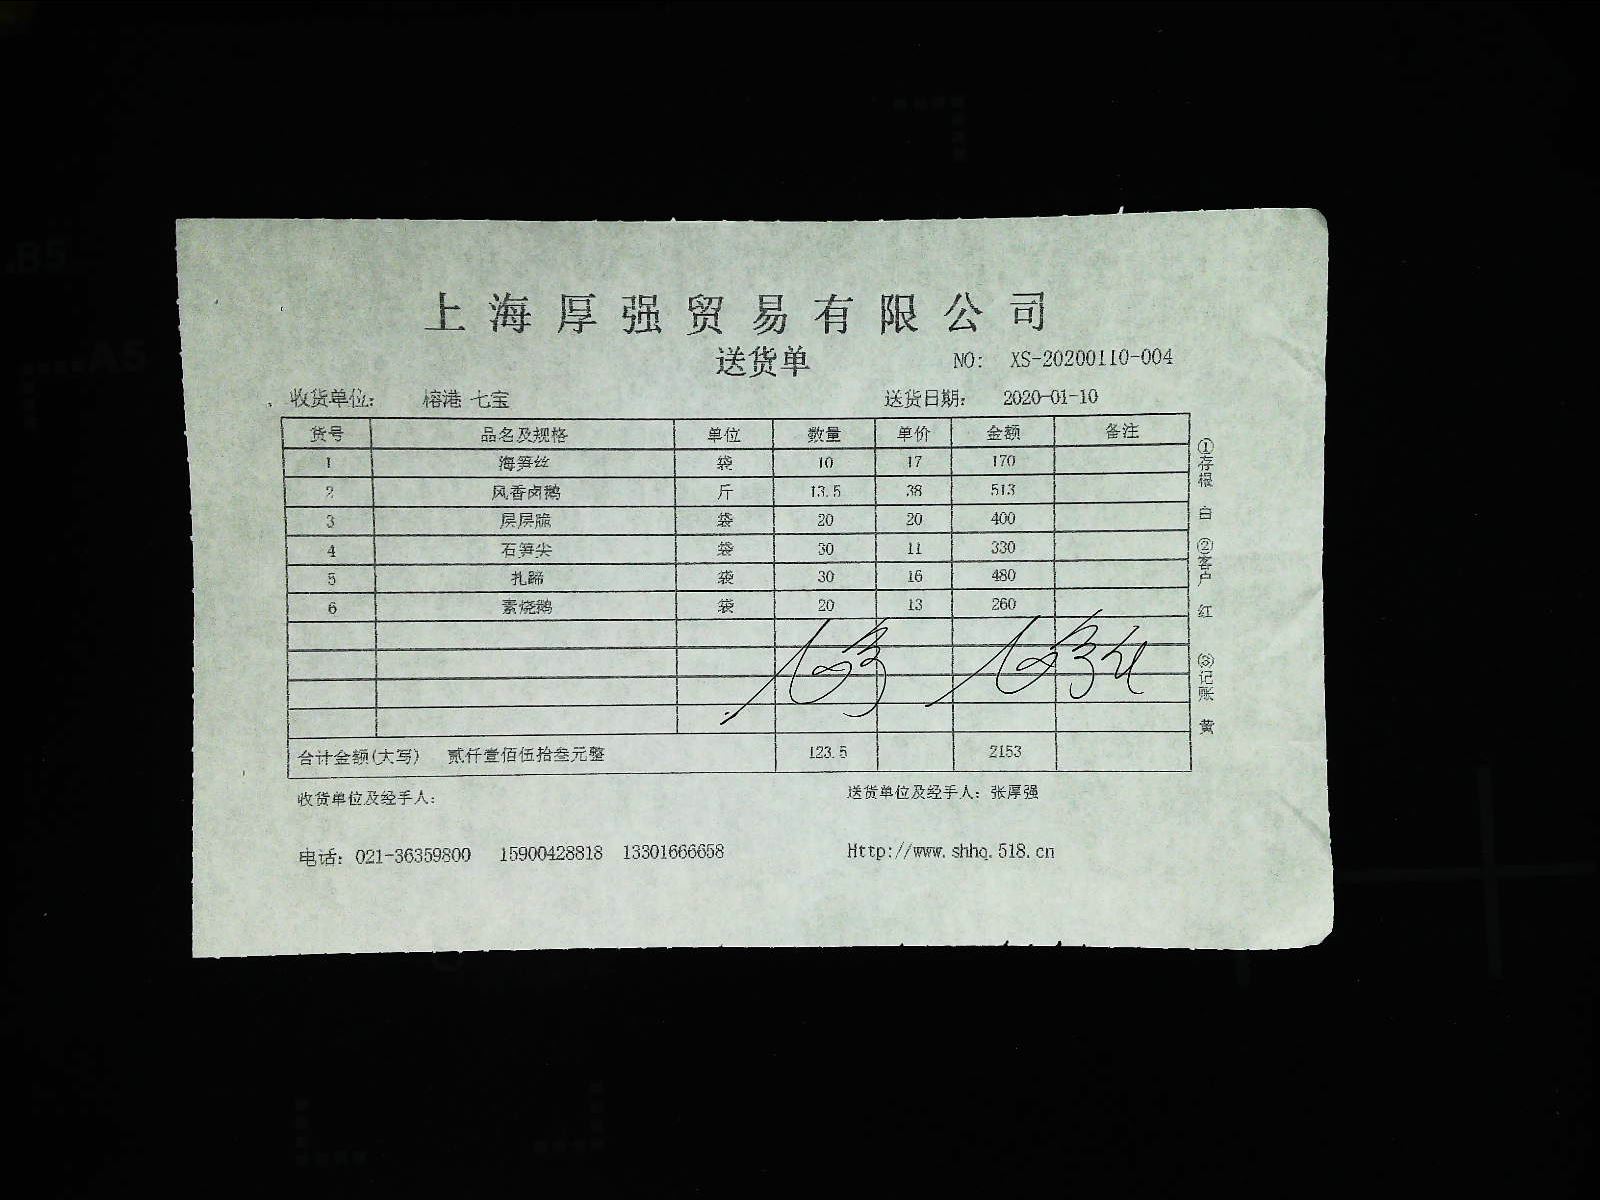 上海厚强贸易有限公司
送货单 NO: XS-20200110-004
收货单位: 榕港 七宝 送货日期: 2020-01-10
货号 品名及规格 单位 数量 单价 金额 备注
1 海笋丝 袋 10 17 170
2 风香卤鹅 斤 13.5 38 513
3 层层脆 袋 20 20 400
4 石笋尖 袋 30 11 330
5 扎蹄 袋 30 16 480
6 素烧鹅 袋 20 13 260
合计金额(大写) 贰仟壹佰伍拾叁元整 123.5 2153
收货单位及经手人: 送货单位及经手人: 张厚强
电话: 021-36359800 15900428818 13301666658 Http://www.shhq.518.cn
①存根 白 ②客户 红 ③记账 黄
B5
A5